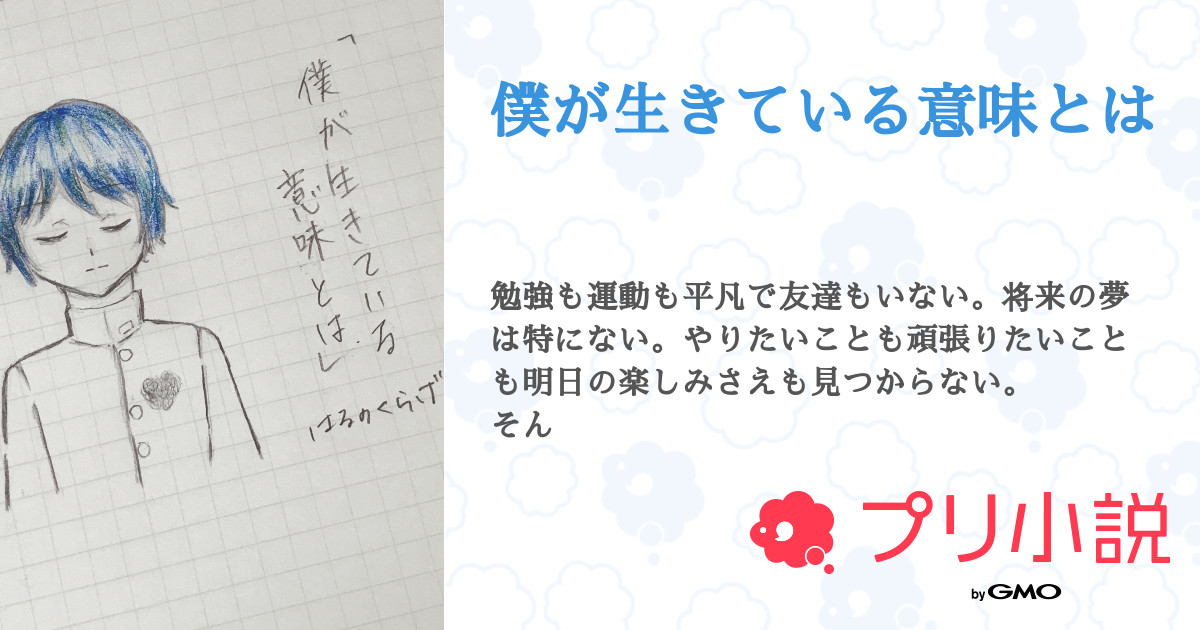 「僕が生きている
意味とは」
はるのくらげ
僕が生きている意味とは
勉強も運動も平凡で友達もいない。将来の夢
は特にない。やりたいことも頑張りたいこと
も明日の楽しみさえも見つからない。
そん
プリ小説
by GMO